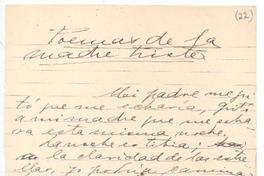 (22)
Poemas de la
madre triste
Mi padre me gri-
tó que me echaría, gritó
a mi madre que me echa-
ra esta misma noche.
La noche es tibia;
la claridad de las estre-
llas, yo podría camina